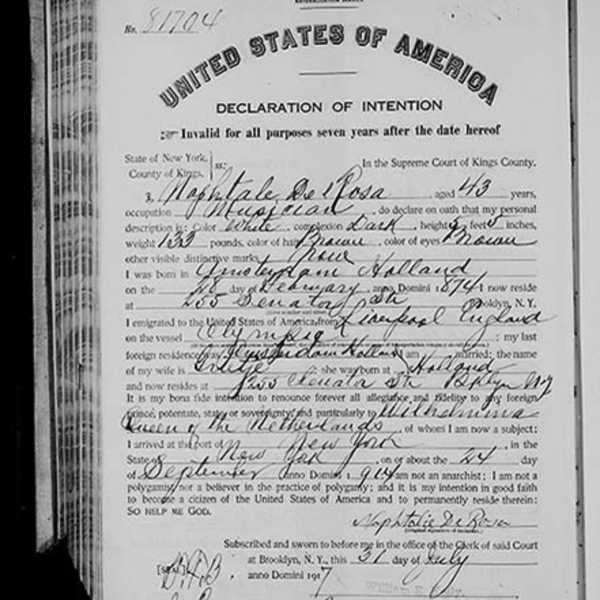 No. 81704
UNITED STATES OF AMERICA
DECLARATION OF INTENTION
Invalid for all purposes seven years after the date hereof
State of New York, In the Supreme Court of Kings County.
County of Kings, ss:
I, Naphtalie De Rosa aged 43 years,
occupation Musician do declare on oath that my personal
description is: Color White complexion Dark height 5 feet 5 inches,
weight 133 pounds, color of hair Brown color of eyes Brown
other visible distinctive marks, None
I was born in Amsterdam Holland
on the 28 day of February anno Domini 1874 I now reside
at 255 Senator Str Brooklyn, N. Y.
I emigrated to the United States of America from Liverpool England
on the vessel Olympic ; my last
foreign residence was Amsterdam Holland I am married; the name
of my wife is ; she was born at Holland
and now resides at 255 Senator Str Bklyn NY
It is my bona fide intention to renounce forever all allegiance and fidelity to any foreign
prince, potentate, state or sovereignty, and particularly to Wilhelmina
Queen of the Netherlands of whom I am now a subject;
I arrived at the port of New York in the
State of New York on or about the 24 day
of September anno Domini 1914 I am not an anarchist; I am not a
polygamist nor a believer in the practice of polygamy; and it is my intention in good faith
to become a citizen of the United States of America and to permanently reside therein:
SO HELP ME GOD.
Naphtalie De Rosa
Subscribed and sworn to before me in the office of the Clerk of said Court
at Brooklyn, N. Y., this 31 day of July
anno Domini 1917